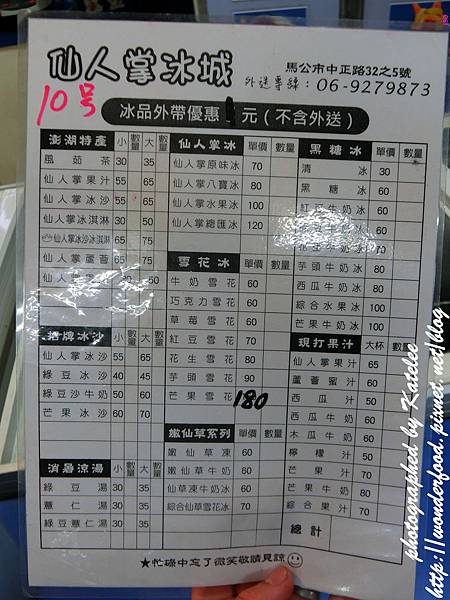 仙人掌冰城
馬公市中正路32之5號
外送專線：06-9279873
10号
冰品外帶優惠1元(不含外送)
澎湖特產 小 數量 大 數量
風茹茶 30 35
仙人掌果汁 55 65
仙人掌冰沙 55 65
仙人掌冰淇淋 30 50
仙人掌冰沙冰淇淋 65 75
仙人掌蘆薈 65 75
招牌冰沙 小 數量 大 數量
仙人掌冰沙 55 65
綠豆冰沙 40 45
綠豆沙牛奶 50 60
芒果冰沙 60 70
消暑涼湯 小 數量 大 數量
綠豆湯 30 35
薏仁湯 30 35
綠豆薏仁湯 30 35
仙人掌冰 單價 數量
仙人掌原味冰 70
仙人掌八寶冰 80
仙人掌水果冰 100
仙人掌總匯冰 120
雪花冰 單價 數量
牛奶雪花 60
巧克力雪花 60
草莓雪花 60
紅豆雪花 70
花生雪花 80
芋頭雪花 90
芒果雪花 180
嫩仙草系列 單價 數量
嫩仙草凍 60
嫩仙草牛奶 60
仙草凍牛奶冰 60
綜合仙草雪花冰 70
黑糖冰 單價 數量
清冰 30
黑糖冰 60
紅豆牛奶冰 60
芋頭牛奶冰 80
西瓜牛奶冰 80
綜合水果冰 100
芒果牛奶冰 100
現打果汁 大杯 數量
仙人掌果汁 65
蘆薈蜜汁 60
西瓜汁 50
西瓜牛奶 60
木瓜牛奶 60
檸檬汁 50
芒果汁 70
芒果牛奶 80
綜合果汁 70
總計
★忙碌中忘了微笑敬請見諒
photographed by Katelee
http://wonderfood.pixnet.net/blog